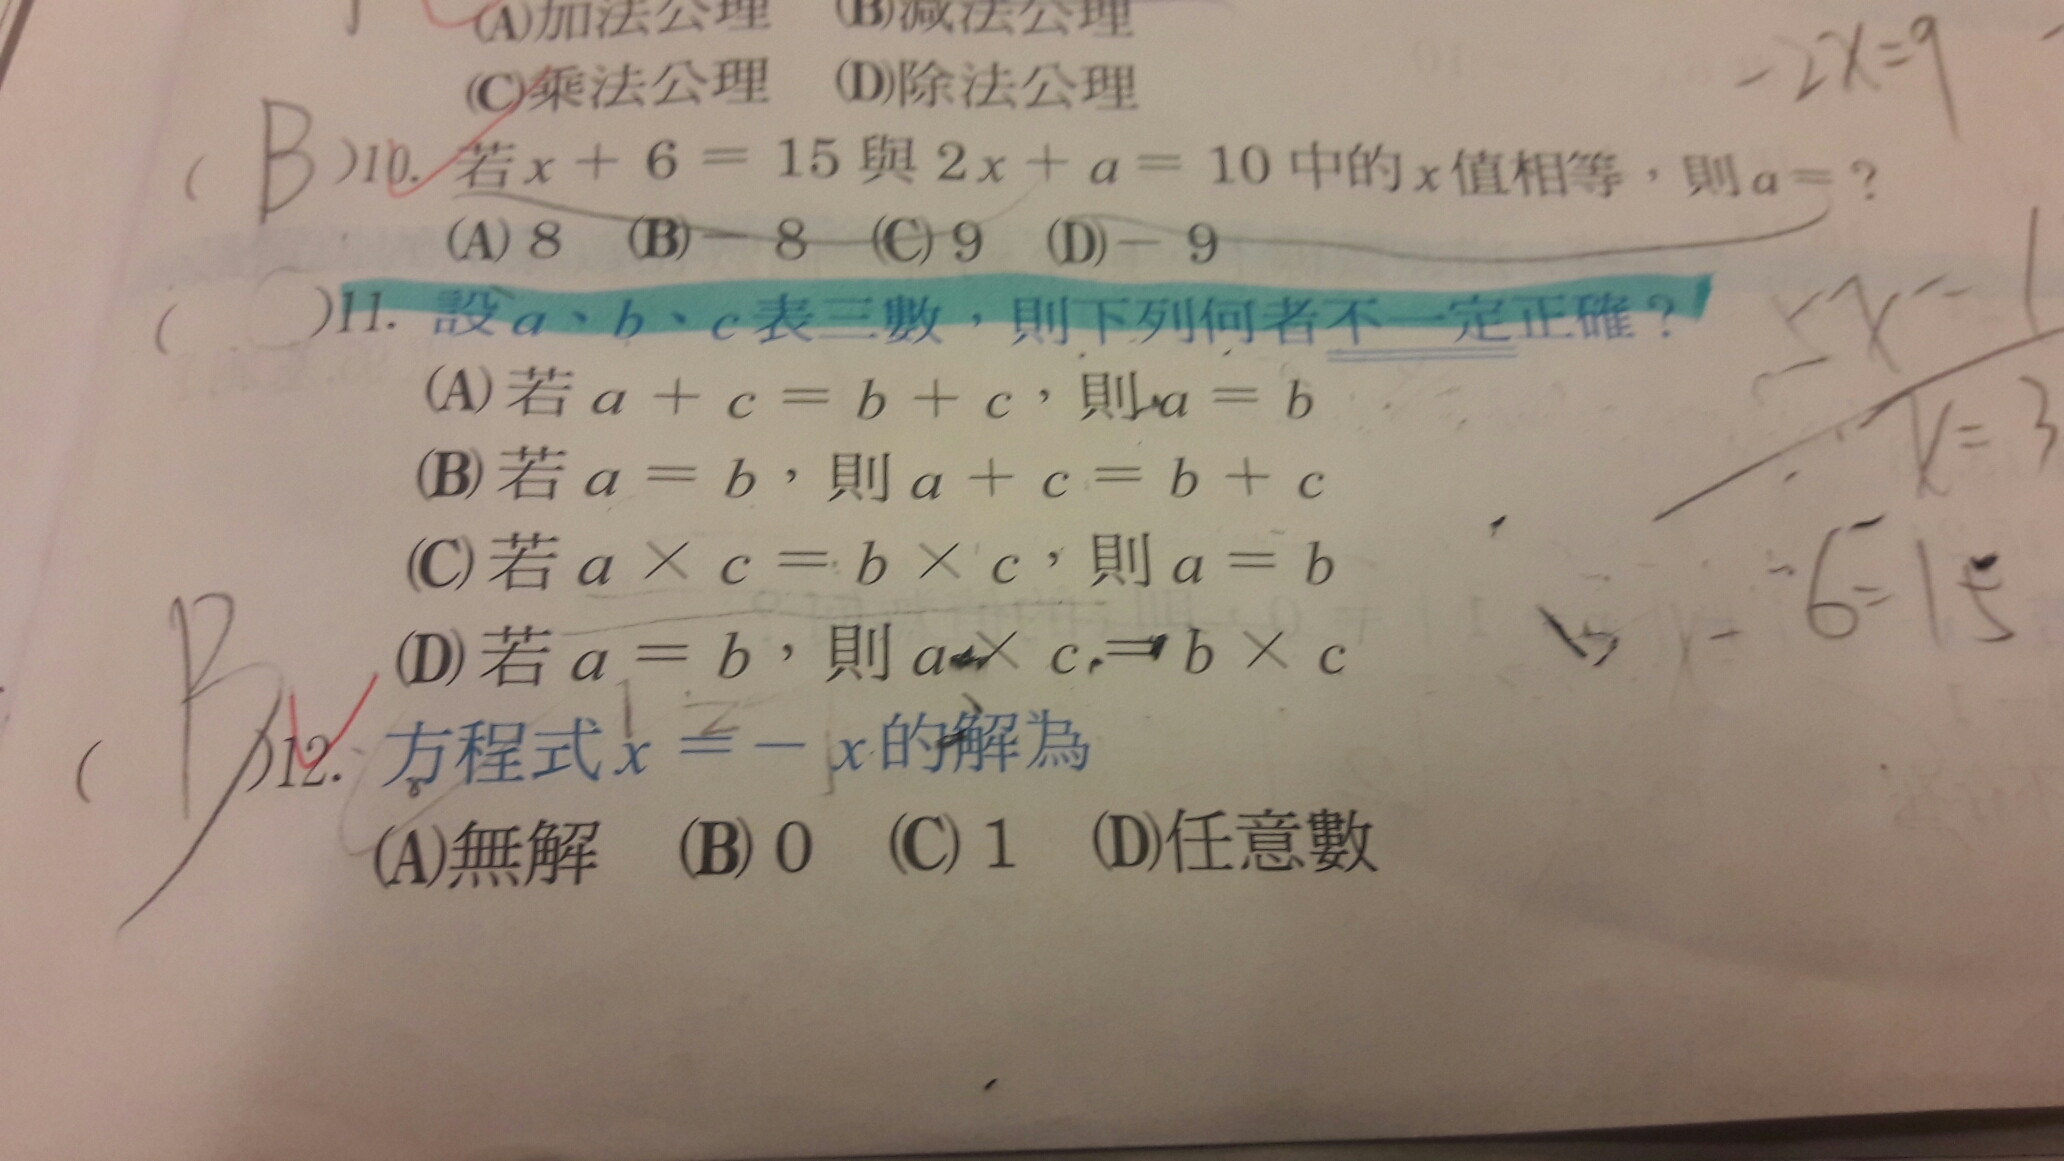 (A)加法公理 (B)減法公理
(C)乘法公理 (D)除法公理
-2x=9
( B )10. 若x + 6 = 15 與 2x + a = 10 中的x值相等，則a = ?
(A) 8 (B)- 8 (C) 9 (D)- 9
( )11. 設a、b、c表三數，則下列何者不一定正確？
(A) 若 a + c = b + c，則 a = b
x = 3
(B) 若 a = b，則 a + c = b + c
(C) 若 a × c = b × c，則 a = b
6=15
(D) 若 a = b，則 a × c = b × c
( B )12. 方程式x = - x的解為
(A)無解 (B) 0 (C) 1 (D)任意數